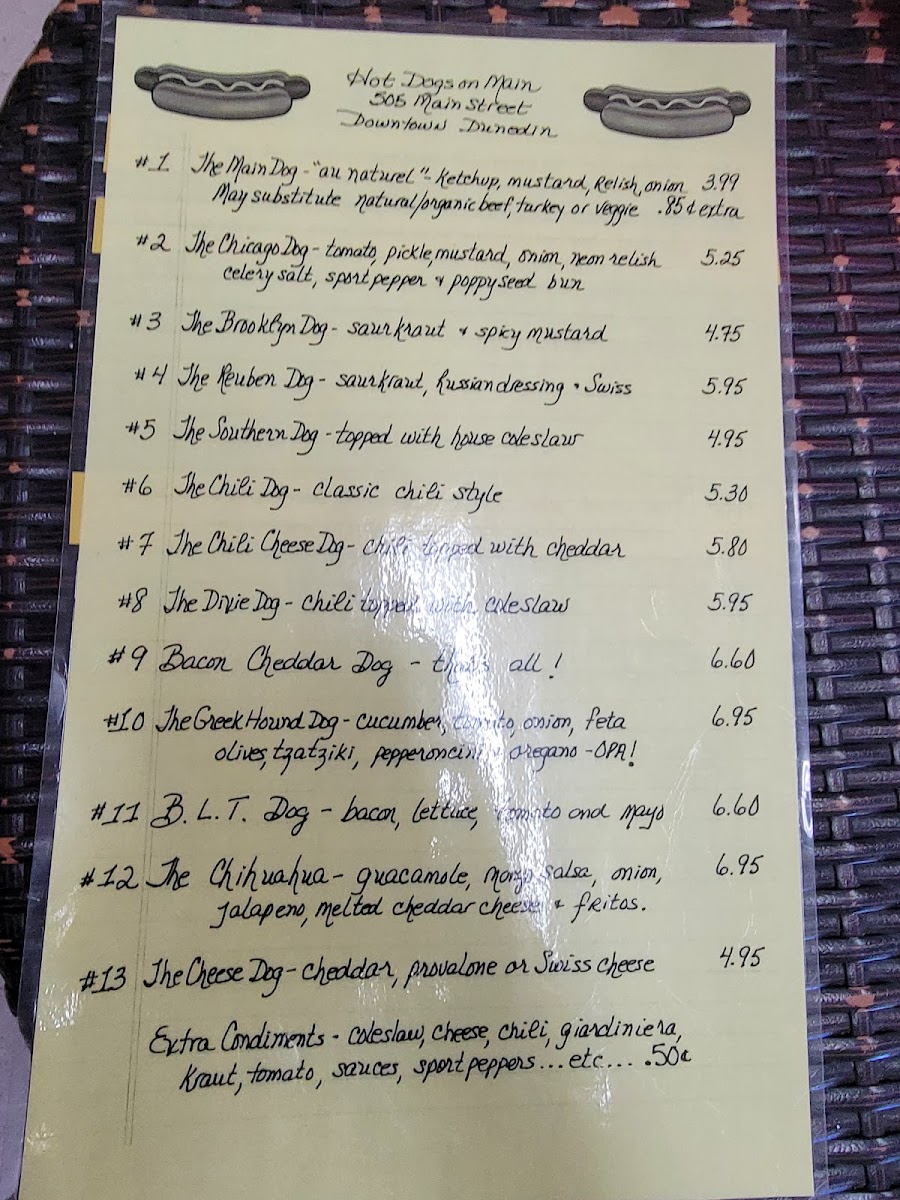 Hot Dogs on Main
505 Main Street
Downtown Dunedin
#1 The Main Dog - "au naturel" - ketchup, mustard, Relish, onion 3.99
May substitute natural/organic beef, turkey or veggie .85¢ extra
#2 The Chicago Dog - tomato, pickle, mustard, onion, neon relish 5.25
celery salt, sport pepper & poppyseed bun
#3 The Brooklyn Dog - saurkraut & spicy mustard 4.75
#4 The Reuben Dog - saurkraut, Russian dressing & Swiss 5.95
#5 The Southern Dog - topped with house coleslaw 4.95
#6 The Chili Dog - classic chili style 5.30
#7 The Chili Cheese Dog - chili topped with cheddar 5.80
#8 The Dixie Dog - chili topped with coleslaw 5.95
#9 Bacon Cheddar Dog - that's all! 6.60
#10 The Greek Hound Dog - cucumber, tomato, onion, feta 6.95
olives, tzatziki, pepperoncini, oregano - OPA!
#11 B.L.T. Dog - bacon, lettuce, tomato and mayo 6.60
#12 The Chihuahua - guacamole, mango salsa, onion, 6.95
jalapeno, melted cheddar cheese & fritos.
#13 The Cheese Dog - cheddar, provalone or Swiss cheese 4.95
Extra Condiments - coleslaw, cheese, chili, giardiniera,
kraut, tomato, sauces, sport peppers...etc.... .50¢